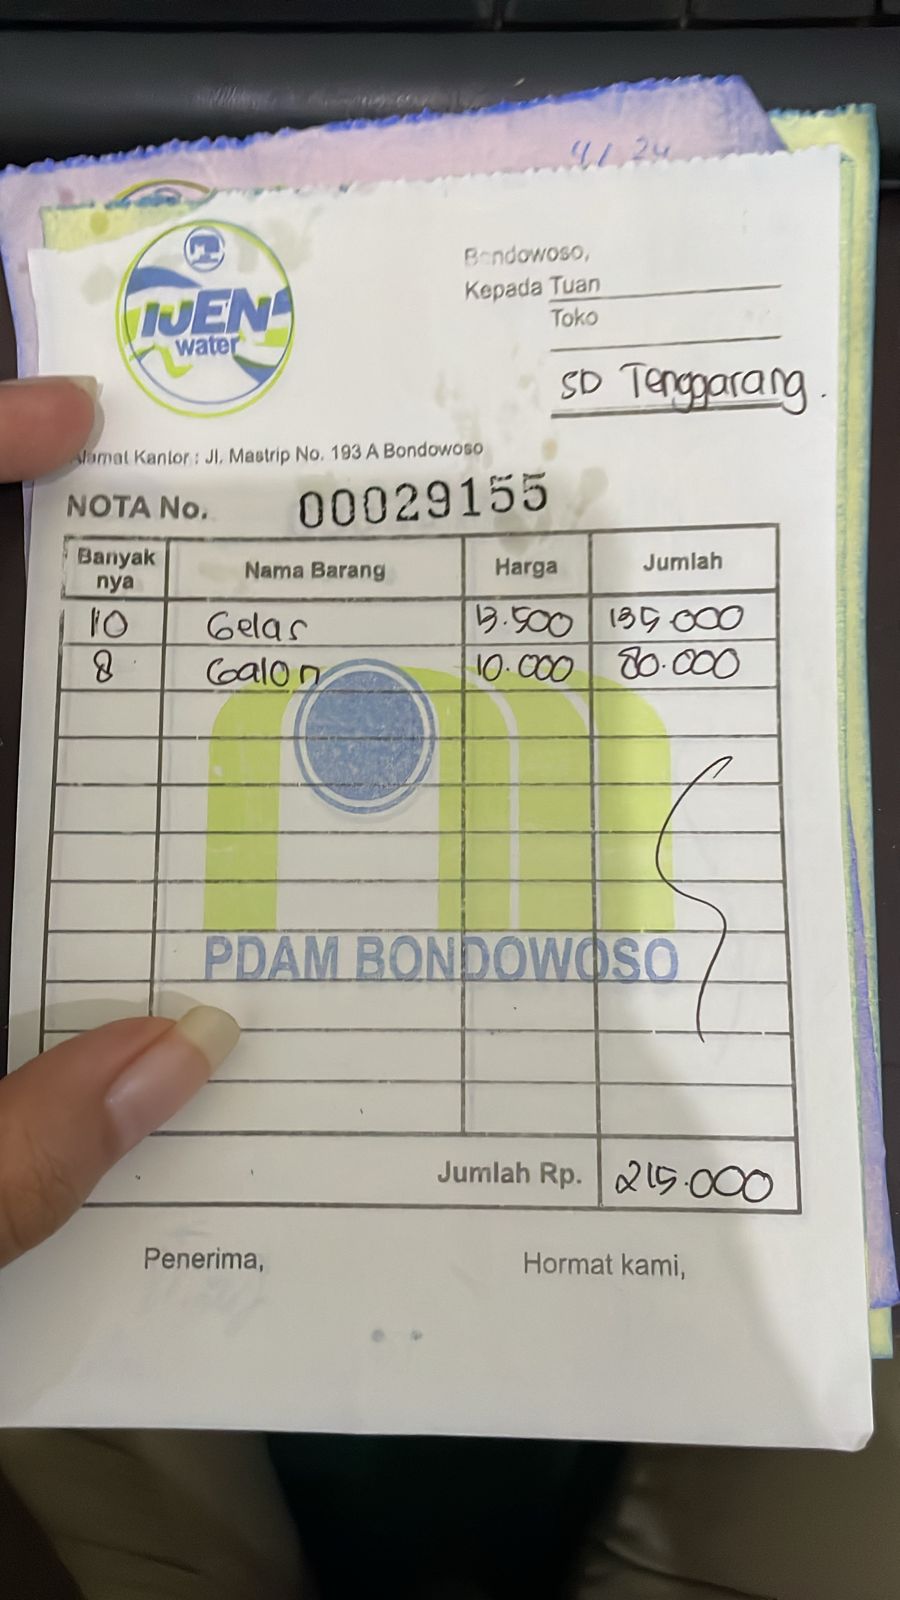 4/ 24
IJEN
water
Bondowoso,
Kepada Tuan
Toko
SD Tenggarang.
Alamat Kantor : Jl. Mastrip No. 193 A Bondowoso
NOTA No. 00029155
Banyak nya Nama Barang Harga Jumlah
10 Gelas 13.500 135.000
8 Galon 10.000 80.000
PDAM BONDOWOSO
Jumlah Rp. 215.000
Penerima, Hormat kami,